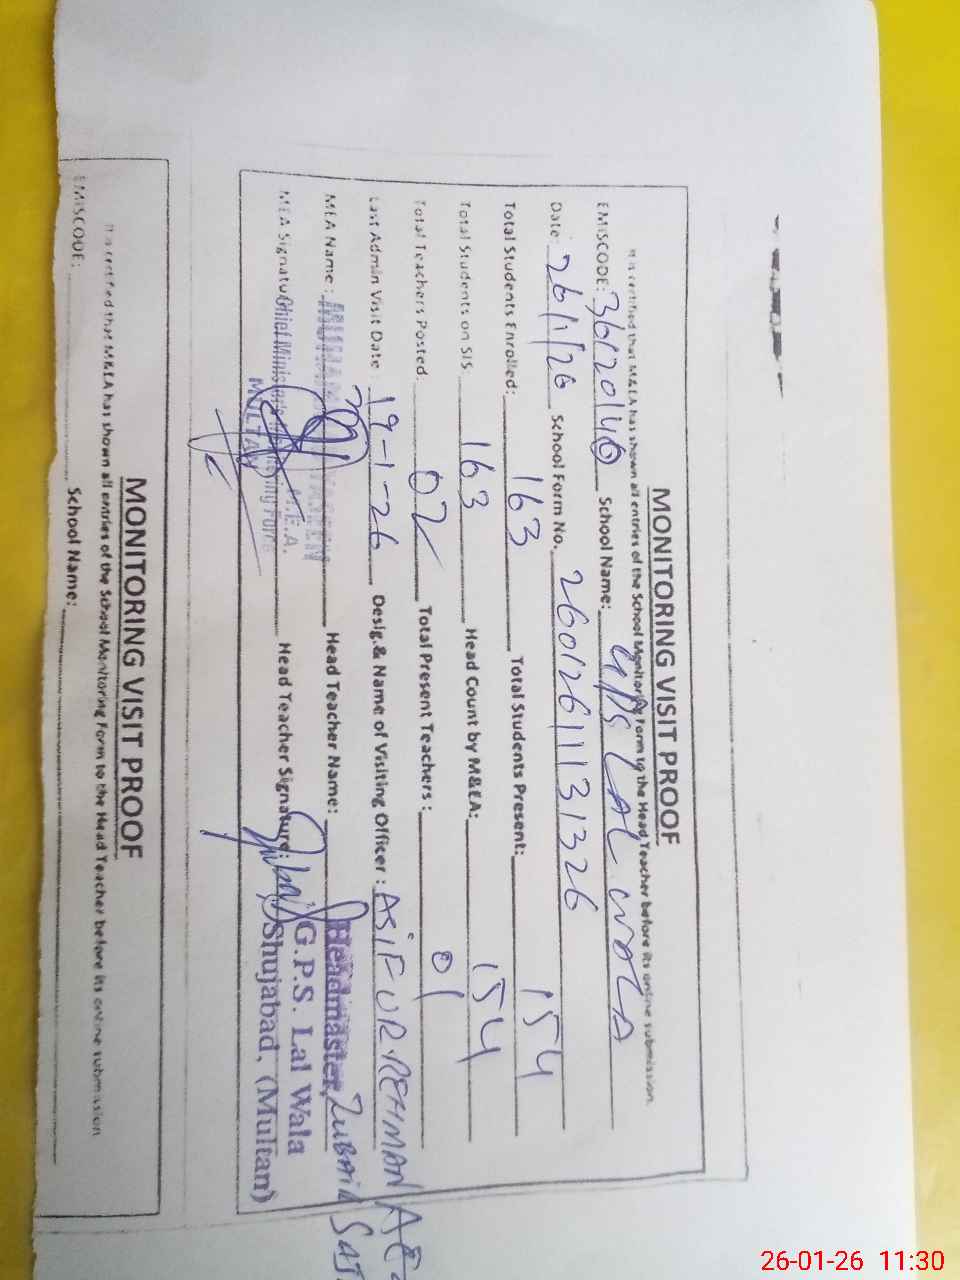 MONITORING VISIT PROOF
It is certified that M&EA has shown all entries of the School Monitoring Form to the Head Teacher before its online submission.
EMISCODE: 36120140 School Name: GPS LAL WALA
Date: 26/1/26 School Form No. 2601261131326
Total Students Enrolled: 163 Total Students Present: 154
Total Students on SIS 163 Head Count by M&EA: 154
Total Teachers Posted: 02 Total Present Teachers: 01
Last Admin Visit Date: 19-1-26 Desig.& Name of Visiting Officer: ASIF UR REHMAN
MEA Name: YASEEN Head Teacher Name: Headmaster, ZUBAIR
M.E.A.
MEA Signature Chief Minister's Monitoring Force Head Teacher Signature: G.P.S. Lal Wala
MULTAN Shujabad, (Multan)
MONITORING VISIT PROOF
It is certified that M&EA has shown all entries of the School Monitoring Form to the Head Teacher before its online submission
EMISCODE: School Name:
26-01-26 11:30